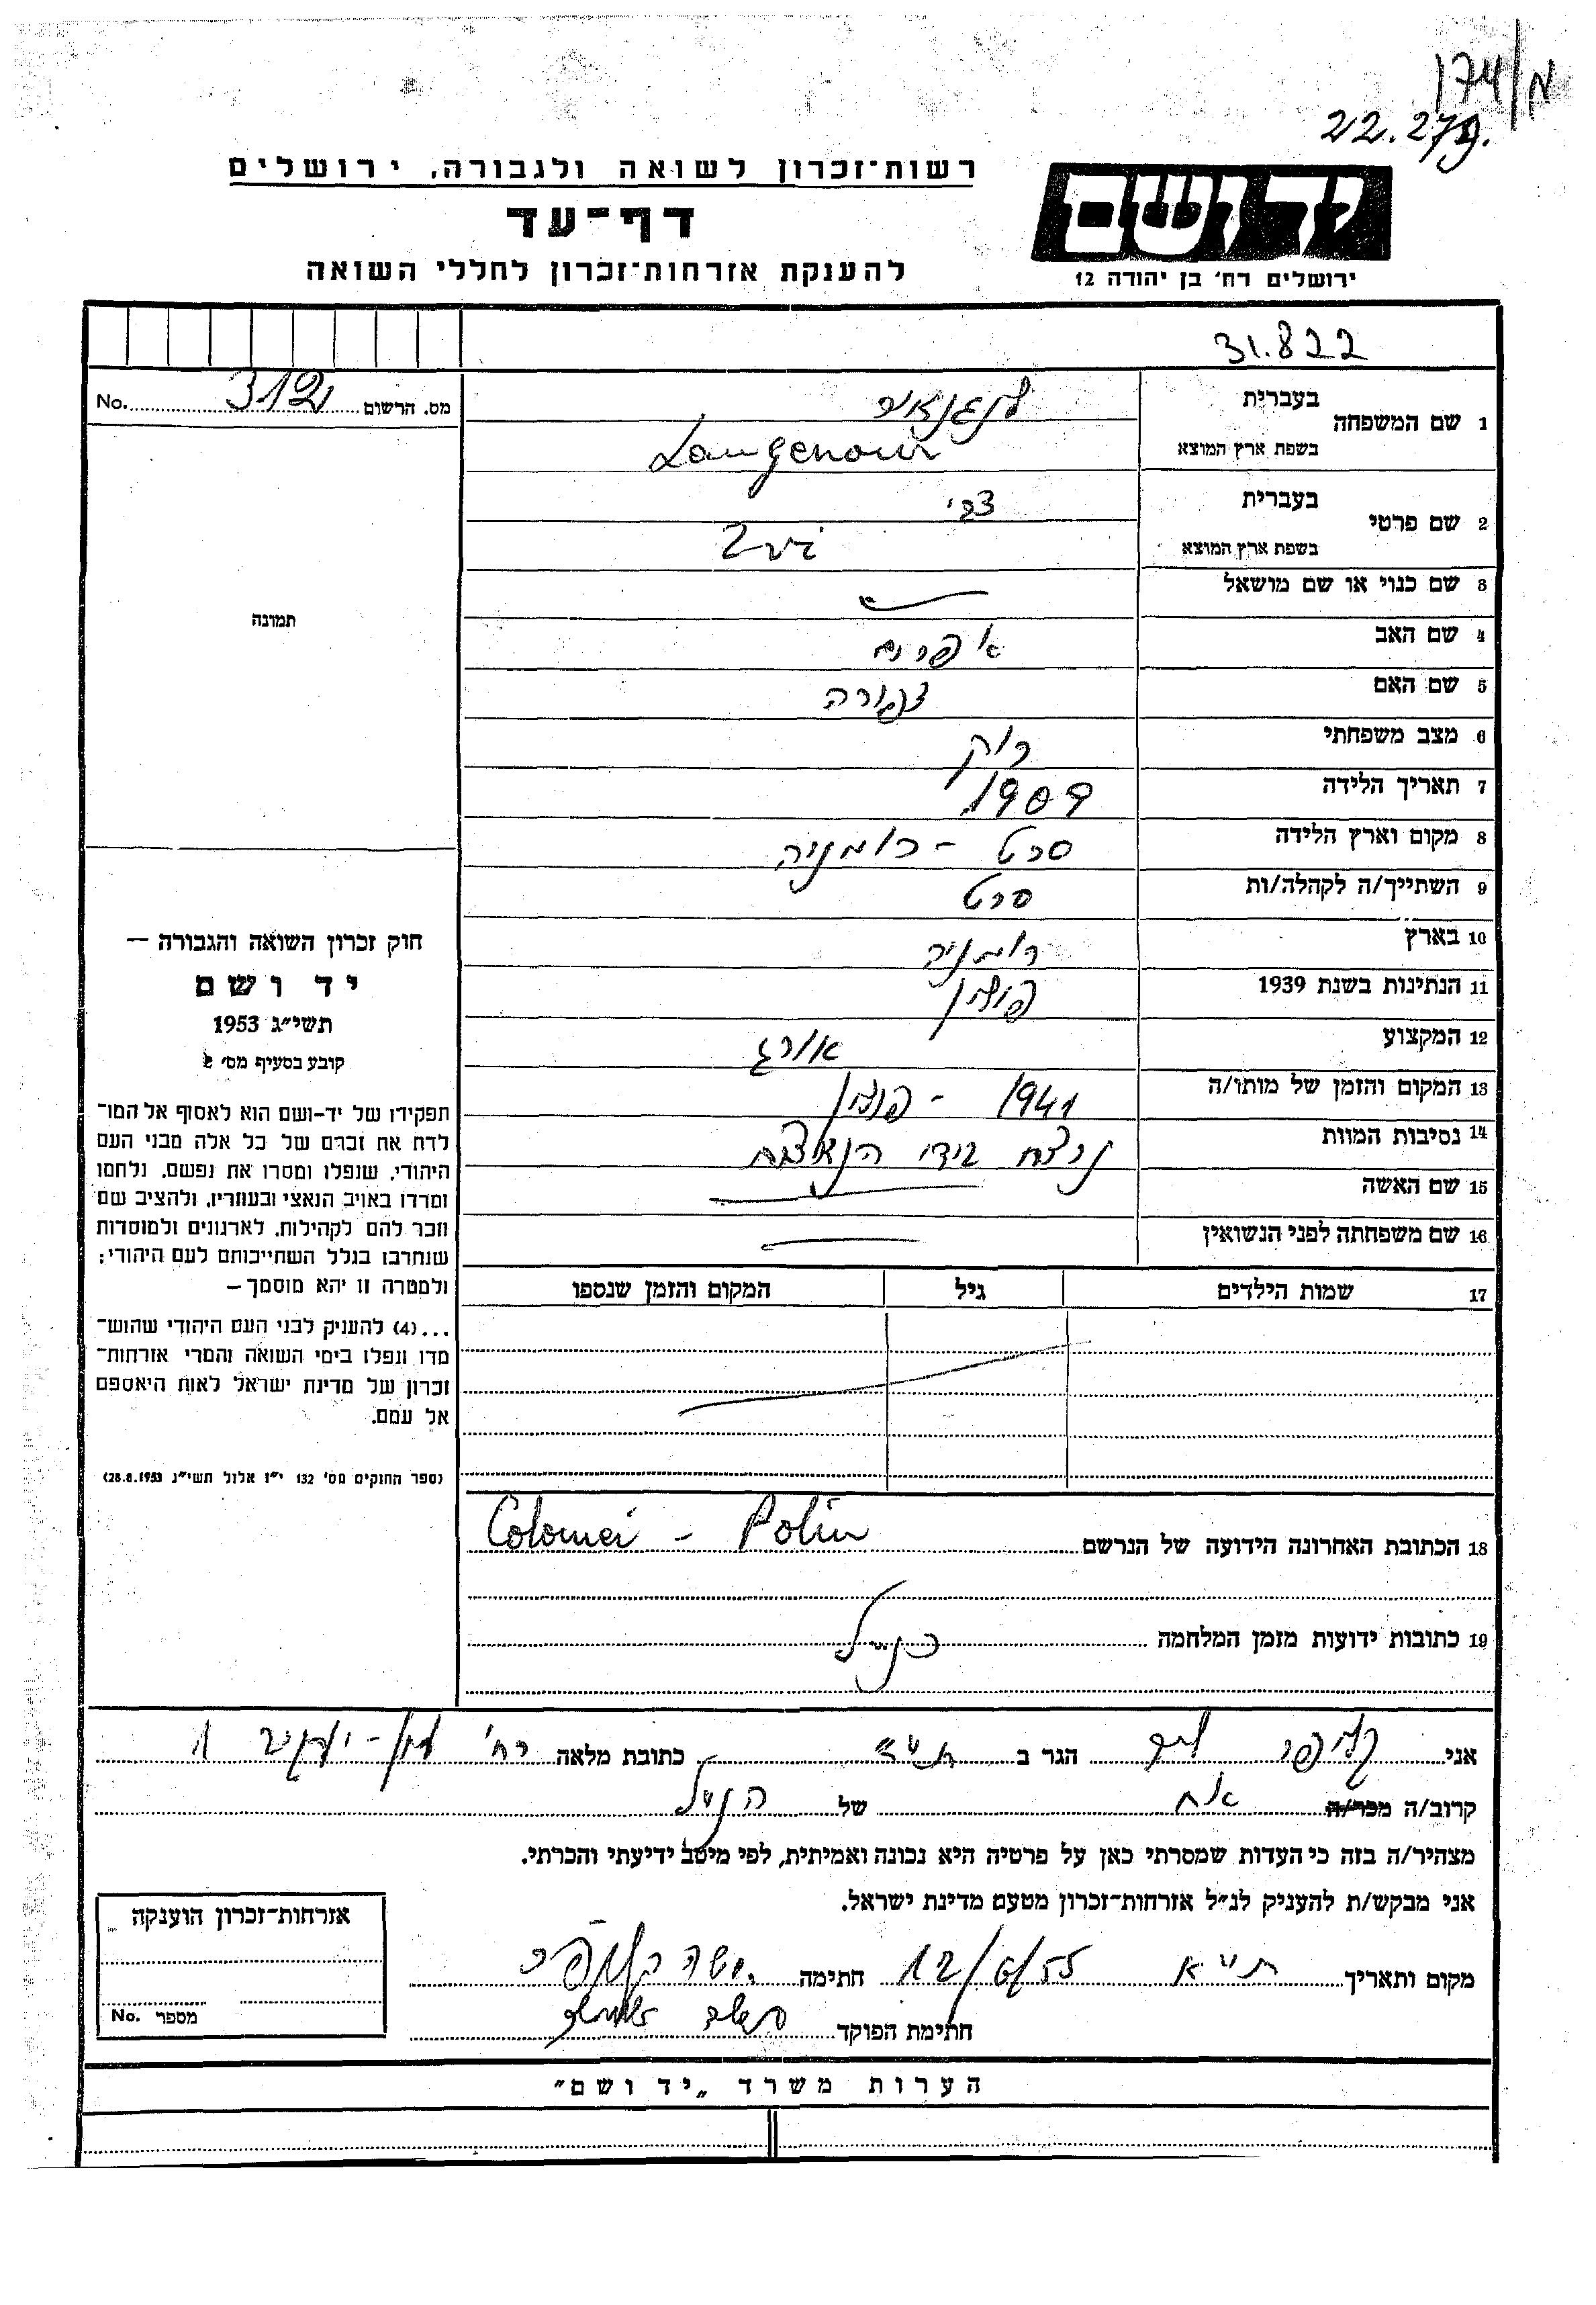 22.279.
רשות־זכרון לשואה ולגבורה, ירושלים
דף־עד
להענקת אזרחות־זכרון לחללי השואה
יד ושם
ירושלים רח' בן יהודה 12
31.822
מס. הרשום 312 No.
1 שם המשפחה
בעברית
בשפת ארץ המוצא Langenour
2 שם פרטי
בעברית צבי
בשפת ארץ המוצא Zvi
3 שם כנוי או שם מושאל
4 שם האב אפרים
5 שם האם צפורה
6 מצב משפחתי רוק
7 תאריך הלידה 1909
8 מקום וארץ הלידה סרט - רומניה
9 השתייך/ה לקהלה/ות סרט
10 בארץ רומניה
11 הנתינות בשנת 1939 פולין
12 המקצוע אורג
13 המקום והזמן של מותו/ה 1941 - פולין
14 נסיבות המוות נרצח בידי הנאצים
15 שם האשה
16 שם משפחתה לפני הנשואין
17 שמות הילדים גיל המקום והזמן שנספו
תמונה
חוק זכרון השואה והגבורה —
יד ושם
תשי״ג 1953
קובע בסעיף מס' 2
תפקידו של יד-ושם הוא לאסוף אל המו־
לדת את זכרם של כל אלה מבני העם
היהודי, שנפלו ומסרו את נפשם, נלחמו
ומרדו באויב הנאצי ובעוזריו, ולהציב שם
וזכר להם לקהילות, לארגונים ולמוסדות
שנחרבו בגלל השתייכותם לעם היהודי;
ולמטרה זו יהא מוסמך —
...(4) להעניק לבני העם היהודי שהוש־
מדו ונפלו בימי השואה והמרי אזרחות־
זכרון של מדינת ישראל לאות היאספם
אל עמם.
(ספר החוקים מס' 132 י״ז אלול תשי״ג 28.8.1953)
18 הכתובת האחרונה הידועה של הנרשם Colomei - Polin
19 כתובות ידועות מזמן המלחמה כנ״ל
אני הגר ב כתובת מלאה רח'
קרוב/ה מכר/ה אח של הנ״ל
מצהיר/ה בזה כי העדות שמסרתי כאן על פרטיה היא נכונה ואמיתית, לפי מיטב ידיעתי והכרתי.
אני מבקש/ת להעניק לנ״ל אזרחות־זכרון מטעם מדינת ישראל.
מקום ותאריך ת״א 12/6/55 חתימה
חתימת הפוקד
אזרחות־זכרון הוענקה
מספר No.
הערות משרד „יד ושם”